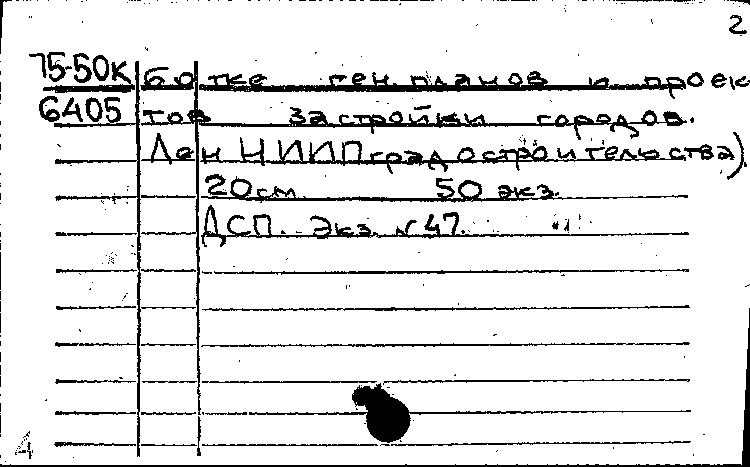 2
75-50к ботке ген. планов и проек
6405 тов застройки городов.
ЛенНИИП градостроительства).
20 см. 50 экз.
ДСП. Экз. №47.
4